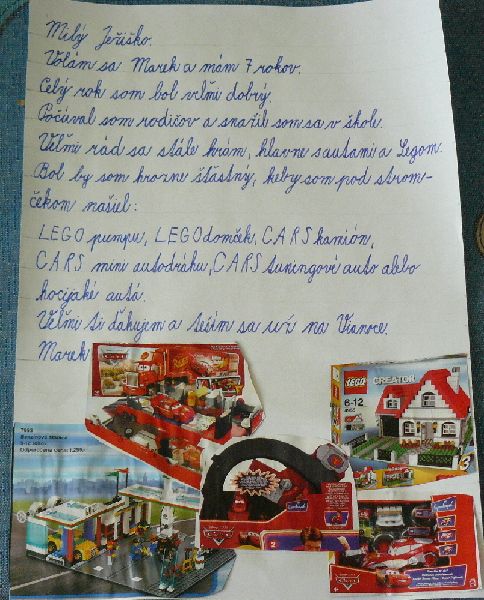 Milý Ježiško.
Volám sa Marek a mám 7 rokov.
Celý rok som bol veľmi dobrý.
Počúval som rodičov a snažil som sa v škole.
Veľmi rád sa stále hrám, hlavne s autami a Legom.
Bol by som hrozne šťastný, keby som pod strom-
čekom našiel:
LEGO pumpu, LEGO domček, CARS kamión,
CARS mini autodráhu, CARS tuningové auto alebo
hocijaké autá.
Veľmi ti ďakujem a teším sa už na Vianoce.
Marek
LEGO CREATOR
6-12
3
7993
2
Cars
Cars